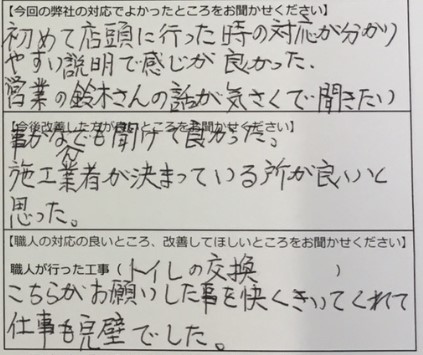 【今回の弊社の対応でよかったところをお聞かせください】
初めて店頭に行った時の対応が分かり
やすい説明で感じが良かった。
営業の鈴木さんの話が気さくで聞きたい
【今後改善した方が良いところをお聞かせください】
事がなんでも聞けて良かった。
施工業者が決まっている所が良いと
思った。
【職人の対応の良いところ、改善してほしいところをお聞かせください】
職人が行った工事（トイレの交換　　　　）
こちらがお願いした事を快くきいてくれて
仕事も完璧でした。